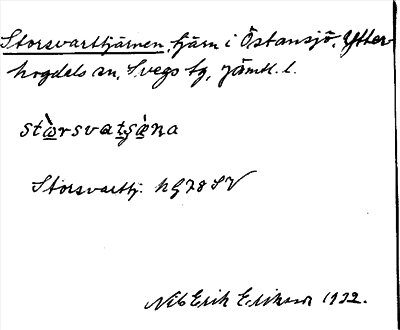 Storsvarttjärnen, tjärn i Östansjö, Ytter-
hogdals sn, Svegs tg, Jämtl. l.
stὼrsvatşὰ̈na
Storsvarttj. hG78 SV
Nils Erik Eriksson 1932.